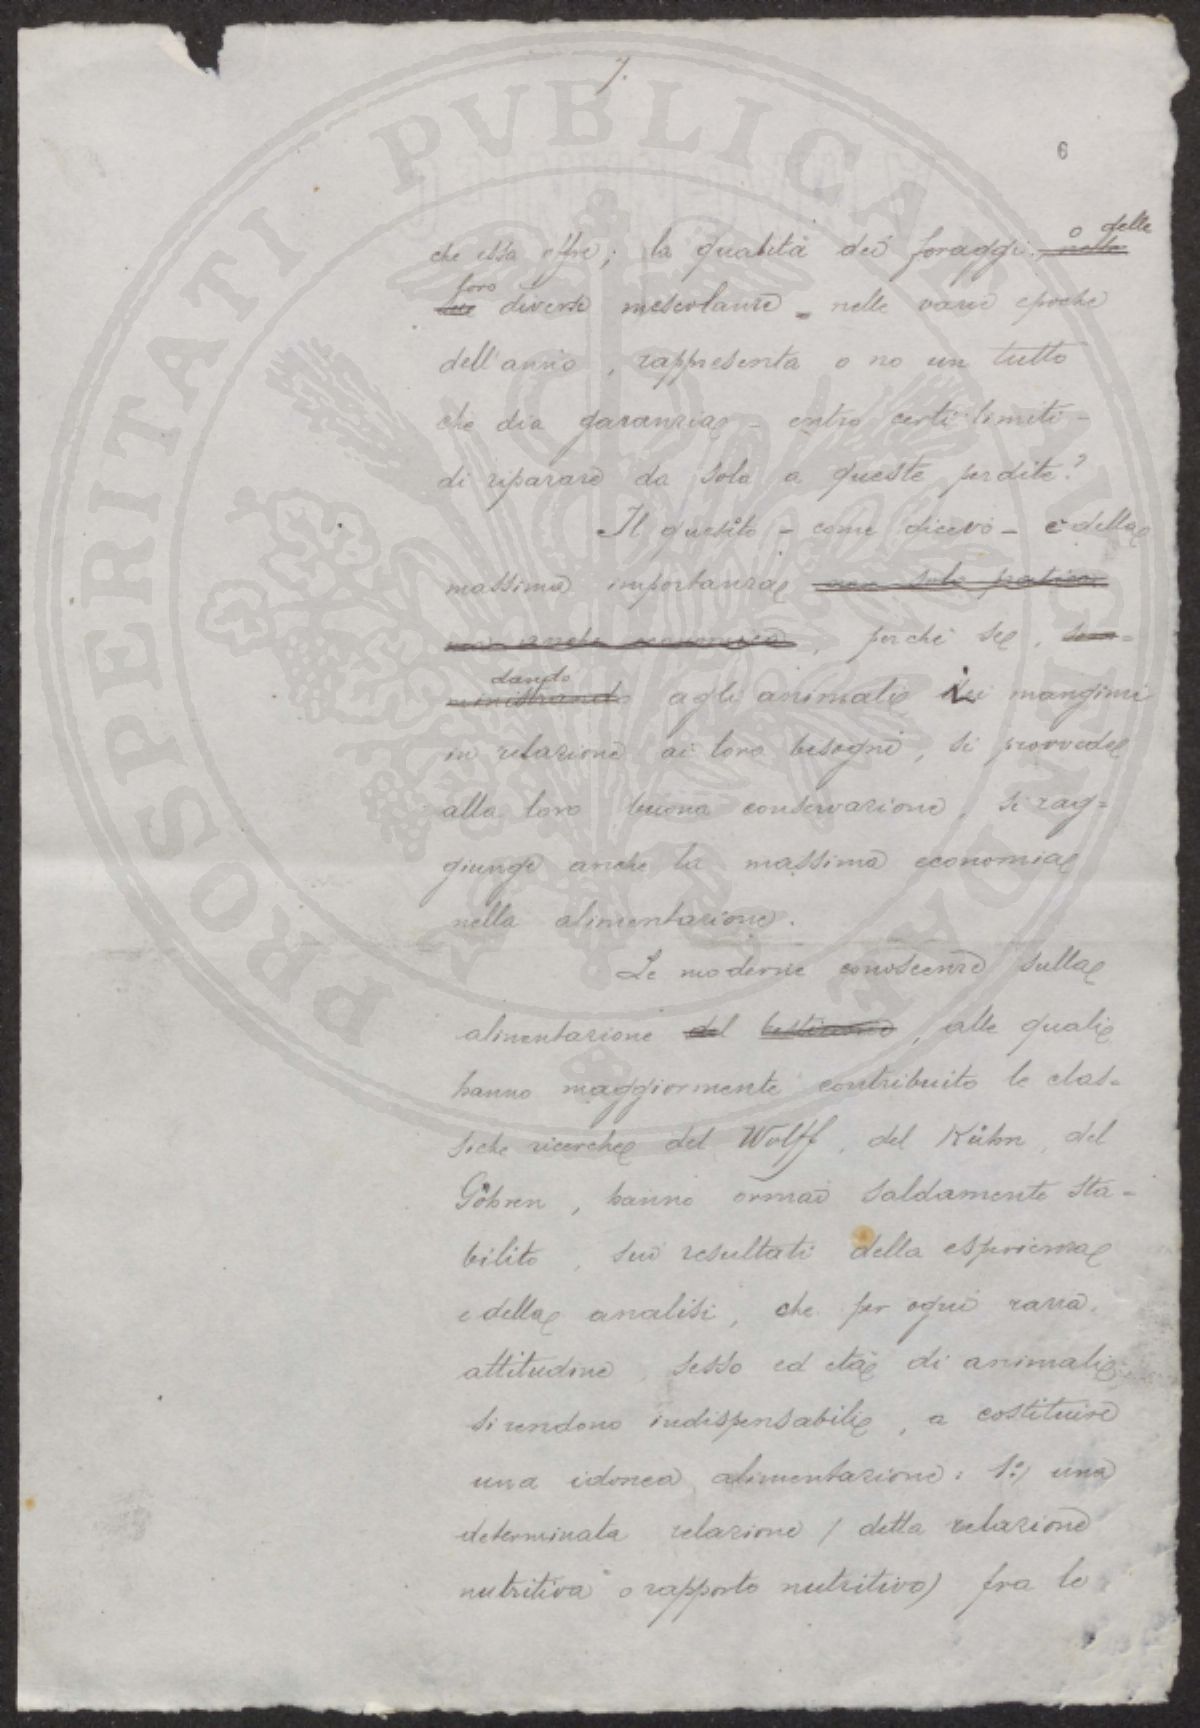 7.
6
che essa offre; la qualità dei foraggi, ~~nelle~~ o delle
~~sue~~ loro diverse mescolanze - nelle varie epoche
dell'anno, rappresenta o no un tutto
che dia garanzia - entro certi limiti -
di riparare da sola a queste perdite?
Il quesito - come dicevo - è della
massima importanza ~~non solo pratica~~
~~ma anche economica~~, perché se, ~~som=~~
~~ministrando~~ dando agli animali i mangimi
in relazione ai loro bisogni, si provvede
alla loro buona conservazione, si rag=
giunge anche la massima economia
nella alimentazione.
Le moderne conoscenze sulla
alimentazione ~~del bestiame~~, alle quali
hanno maggiormente contribuito le clas=
siche ricerche del Wolff, del Kühn, del
Göhren, hanno ormai saldamente sta=
bilito, sui resultati della esperienza
e della analisi, che per ogni razza,
attitudine, sesso ed età di animali,
si rendono indispensabili, a costituire
una idonea alimentazione: 1:°) una
determinata relazione (detta relazione
nutritiva o rapporto nutritivo) fra le
PROSPERITATI PVBLICAE AVGENDAE